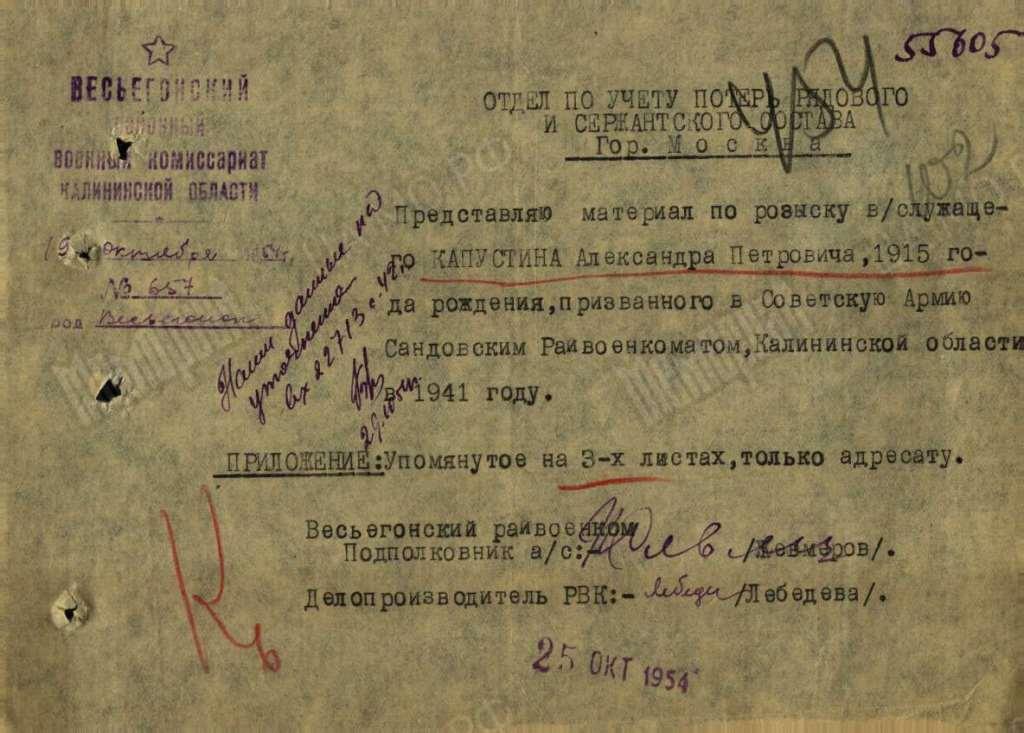 55605
ВЕСЬЕГОНСКИЙ
РАЙОННЫЙ
ВОЕННЫЙ КОМИССАРИАТ
КАЛИНИНСКОЙ ОБЛАСТИ
19 октября 1954г.
№ 657
ОТДЕЛ ПО УЧЕТУ ПОТЕРЬ РЯДОВОГО
И СЕРЖАНТСКОГО СОСТАВА
Гор. Москва
102
Представляю материал по розыску в/служаще-
го КАПУСТИНА Александра Петровича,1915 го-
да рождения,призванного в Советскую Армию
Сандовским Райвоенкоматом,Калининской области
в 1941 году.
Наши данные
уточнены
вх 22713с-42г
ПРИЛОЖЕНИЕ:Упомянутое на 3-х листах,только адресату.
Весьегонский райвоенком
Подполковник а/с:-
Делопроизводитель РВК:- /Лебедева/.
25 ОКТ 1954